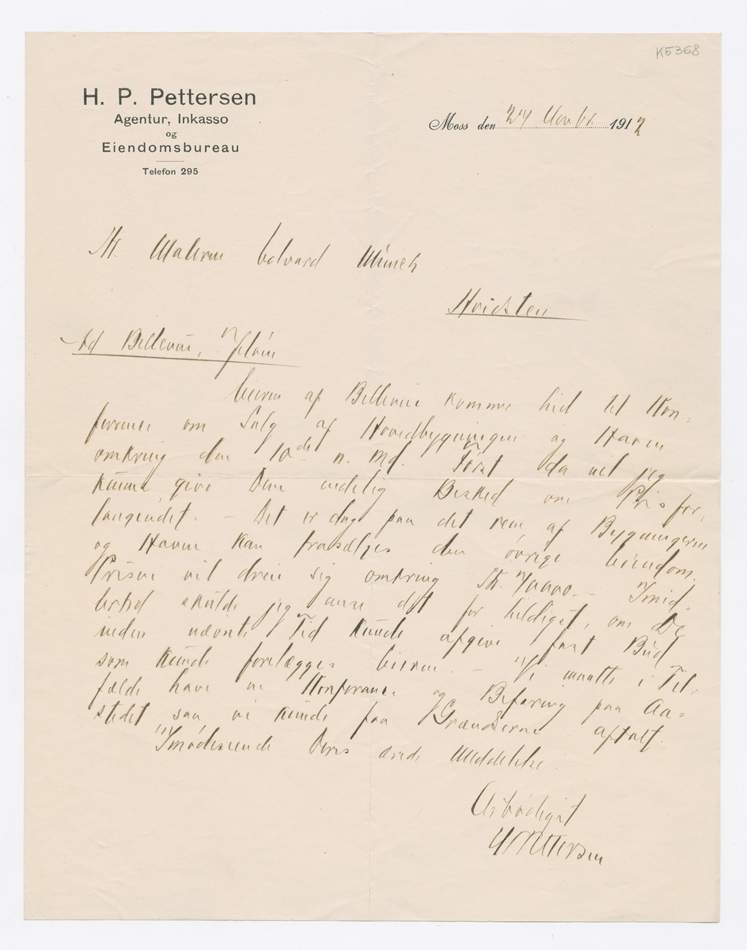 K5368
H. P. Pettersen
Agentur, Inkasso
og
Eiendomsbureau
Telefon 295
Moss den 24 Novbr. 1912
Hr. Maleren Edvard Munch
Hvidsten
Ad Bellevue, Jeløen
Eieren af Bellevue kommer hid til Kon-
ference om Salg af Hovedbygningen og Haven
omkring den 10de n. Md. Först da vil jeg
kunne give Dem endelig Besked om Pris for-
langendet. – Det er dog paa det rene at Bygningerne
og Haven kan frasælges den övrige Eiendom.
Prisen vil dreie sig omkring Kr. – Imid-
lertid skulde jeg anse det for heldigst, om De
inden nævnte Tid kunde afgive fast Bud
som kunde forelægges Eieren. – Vi maatte i Til-
fælde have en Konferance og Befaring paa Aa-
stedet saa vi kunde faa Grændserne aftalt.
Imödeseende Deres ærede Meddelelse.
Ærbödigst
HPPettersen